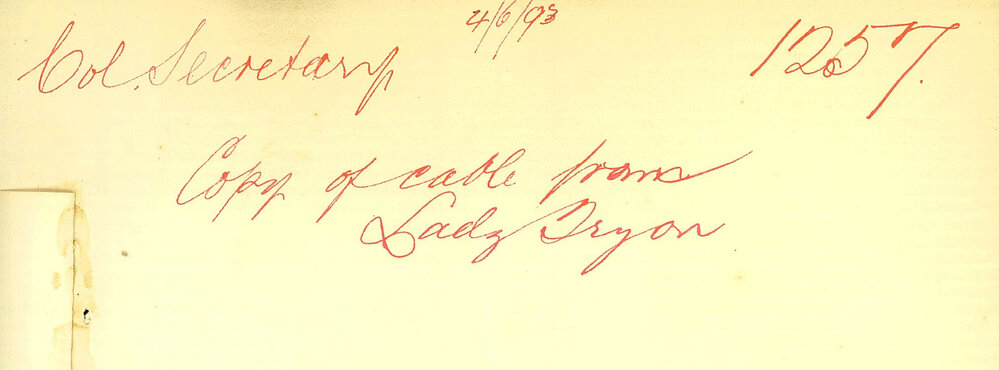 4/6/93
Col. Secretary 1257.
Copy of cable from
Lady Tryon